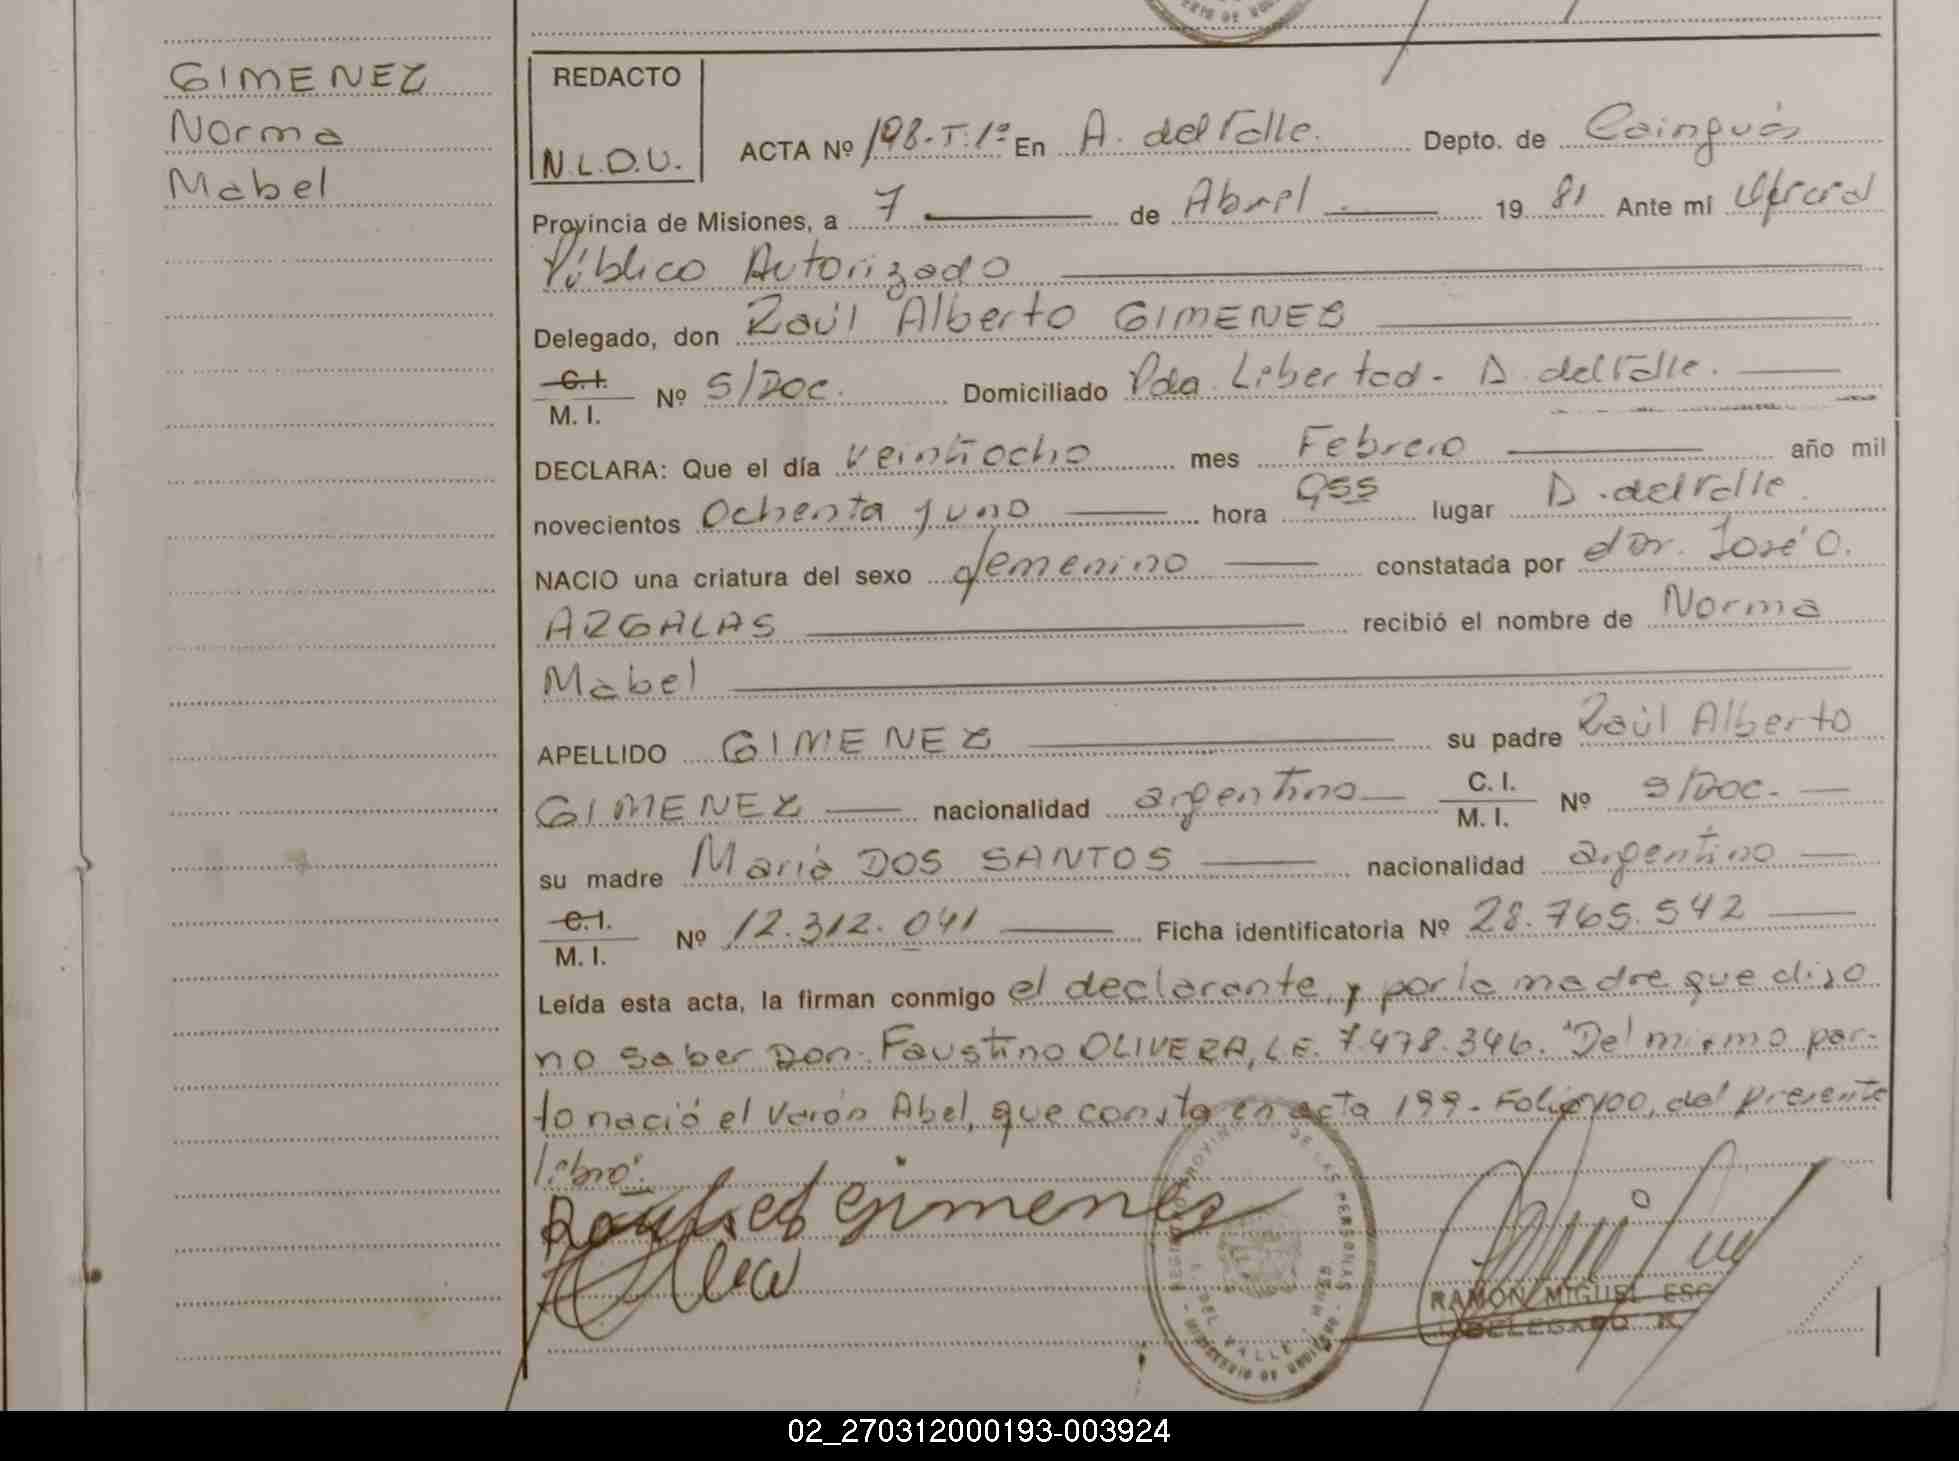 GIMENEZ
Norma
Mabel
REDACTO
N.L.D.U.
ACTA Nº 198-T.1º En A. del Valle. Depto. de Cainguás
Provincia de Misiones, a 7 de Abril 19 81 Ante mi Oficial
Público Autorizado
Delegado, don Raúl Alberto GIMENEZ
C.I.
M. I. Nº S/Doc. Domiciliado Pda. Libertad - A. del Valle.
DECLARA: Que el día veintiocho mes Febrero año mil
novecientos Ochenta y uno hora 955 lugar A. del Valle.
NACIO una criatura del sexo femenino constatada por dor. José O.
ARGALAS recibió el nombre de Norma
Mabel
APELLIDO GIMENEZ su padre Raúl Alberto
GIMENEZ nacionalidad argentino C. I.
M. I. Nº s/Doc.
su madre Maria DOS SANTOS nacionalidad argentino
C.I.
M. I. Nº 12.312.041 Ficha identificatoria Nº 28.765.542
Leída esta acta, la firman conmigo el declarante, y por la madre que dijo
no saber Don. Faustino OLIVERA, L.E. 7.478.346. "Del mismo par-
to nació el varón Abel, que consta en acta 199 - Folio 100, del presente
libro".
Gimenez
REGISTRO PROVINCIAL DE LAS PERSONAS
DEL VALLE
RAMON MIGUEL ESC
DELEGADO R.
02_270312000193-003924